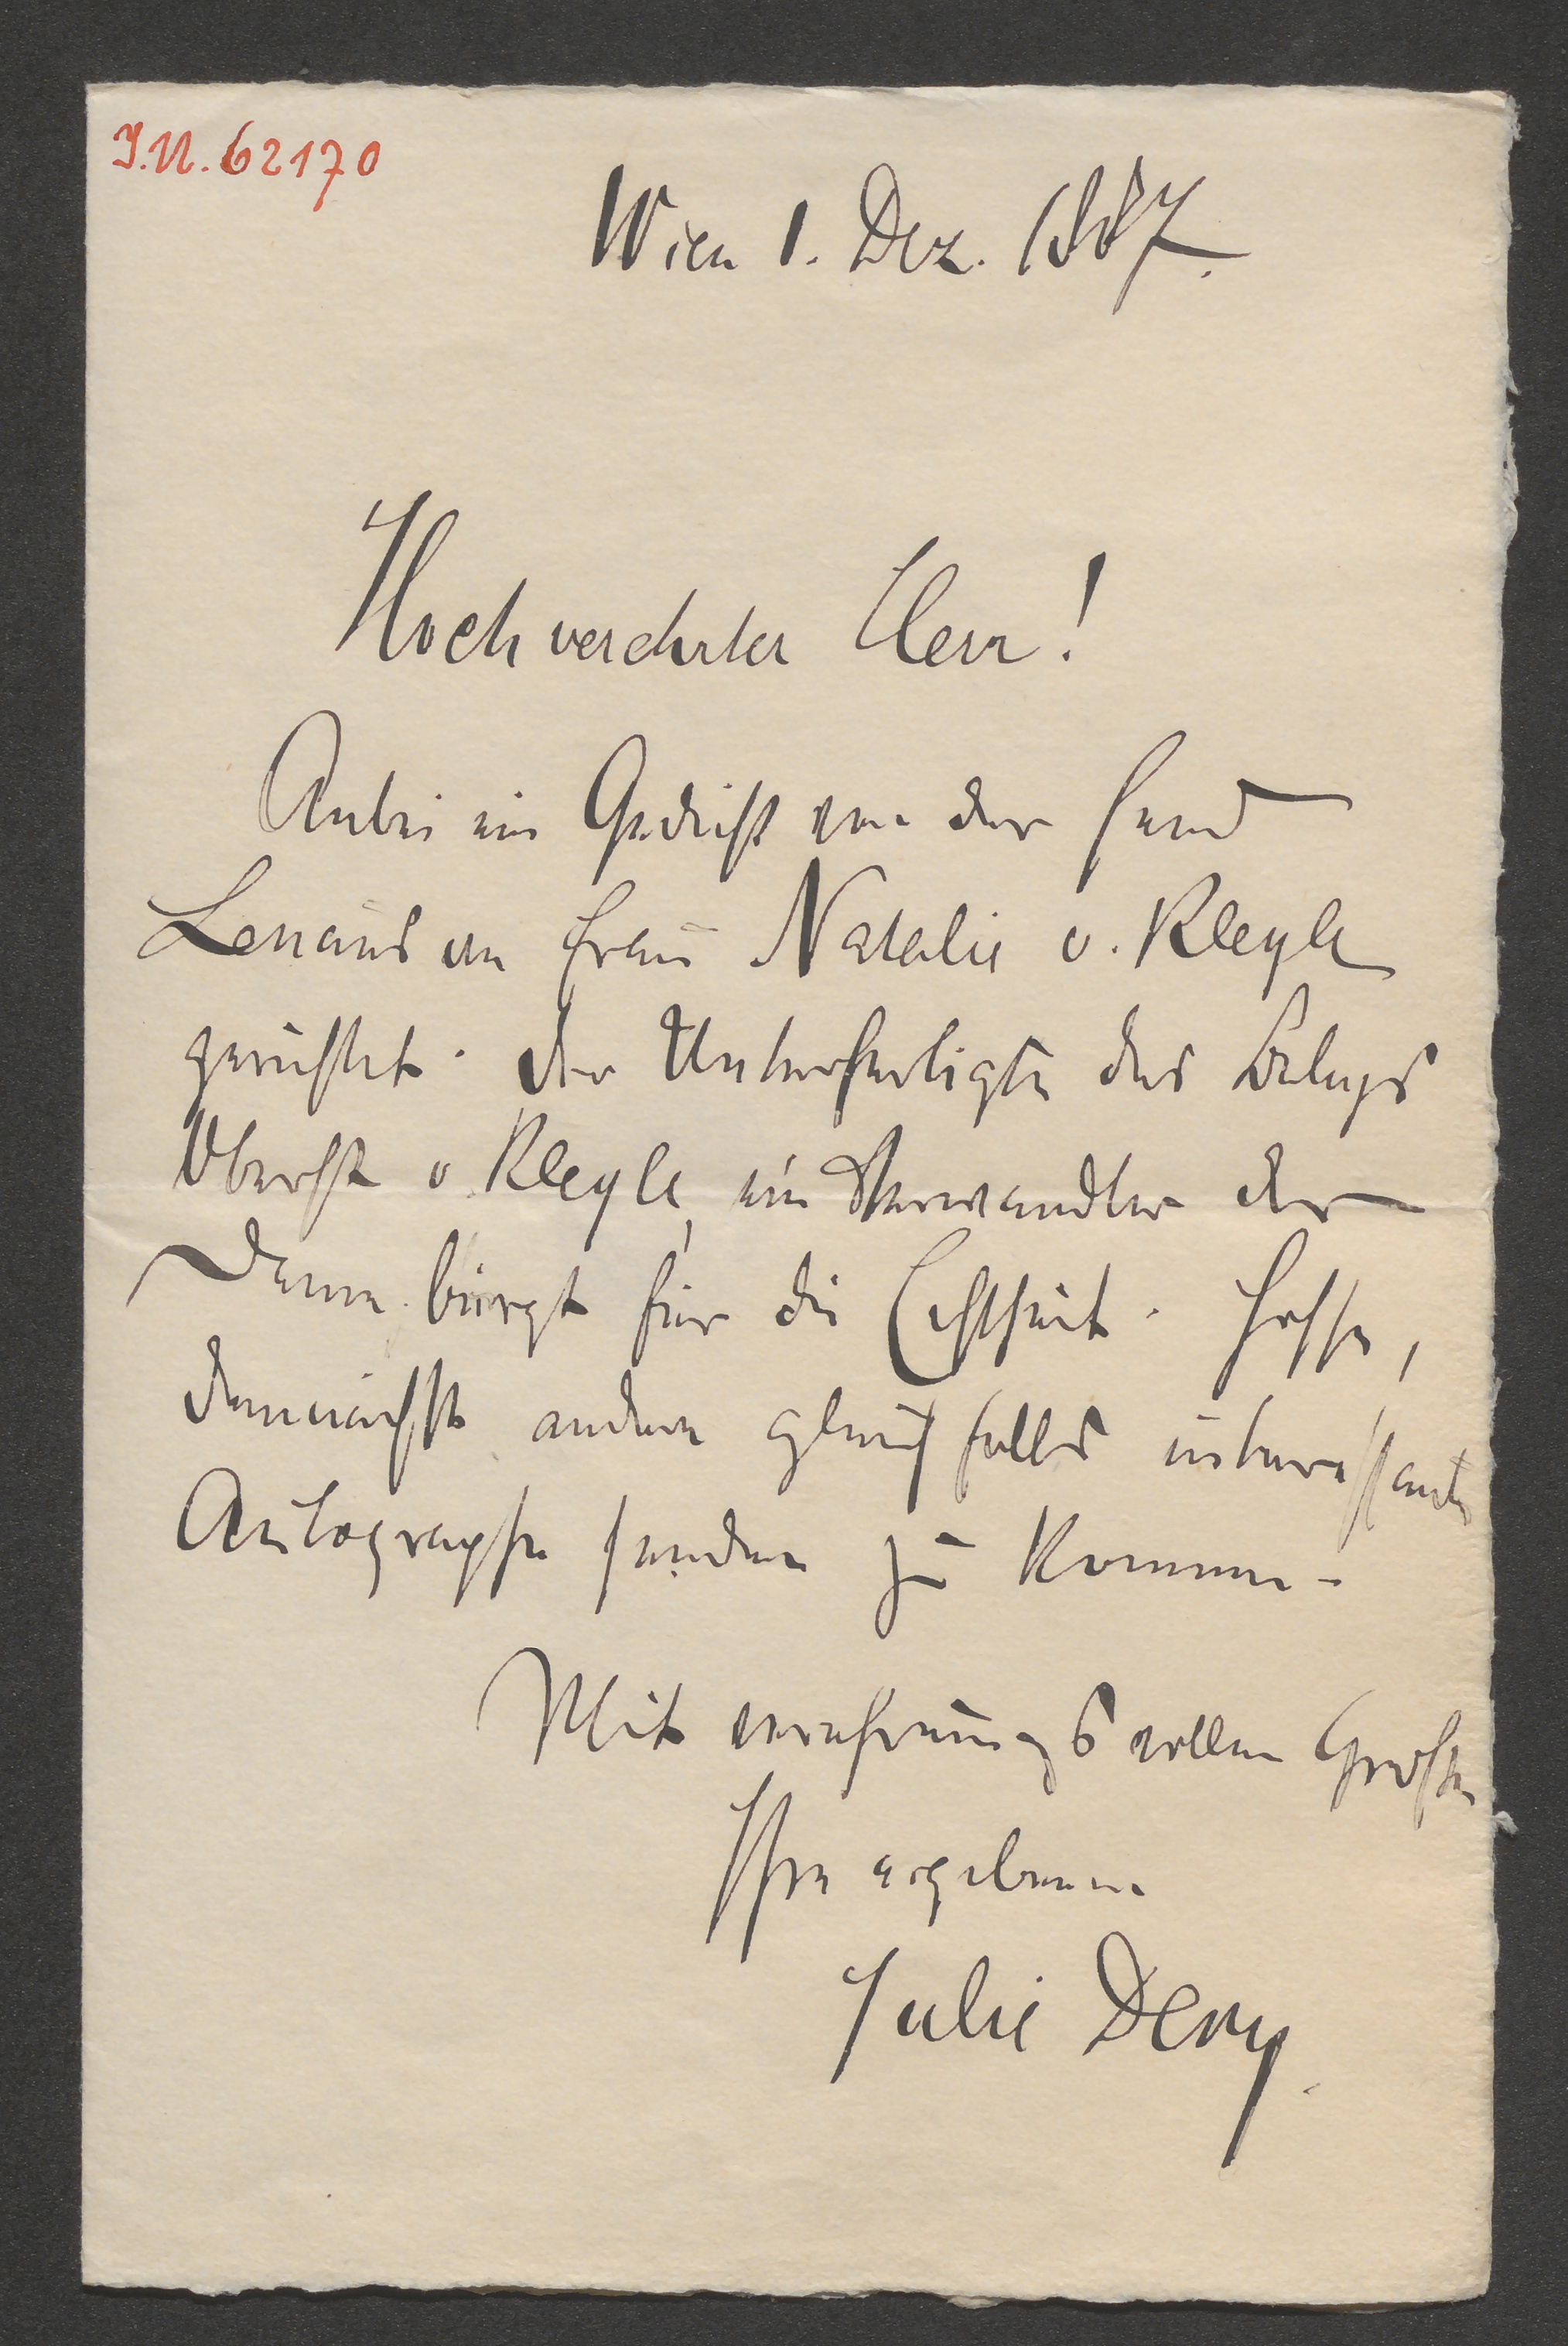 I.N. 62170
Wien 1. Dez. 1887.
Hochverehrter Herr!
Anbei ein Gedicht von der Hand
Lenaus an Frau Natalie v. Kleyle
gerichtet. Der Unterfertigte des Belegs
Oberst v. Kleyle, ein Verwandter der
Dame bürgt für die Echtheit. Hoffe,
demnächst andere gleichfalls interessante
Autographe senden zu können.
Mit verehrungsvollen Grüßen
Ihre ergebene
Julie Dery.